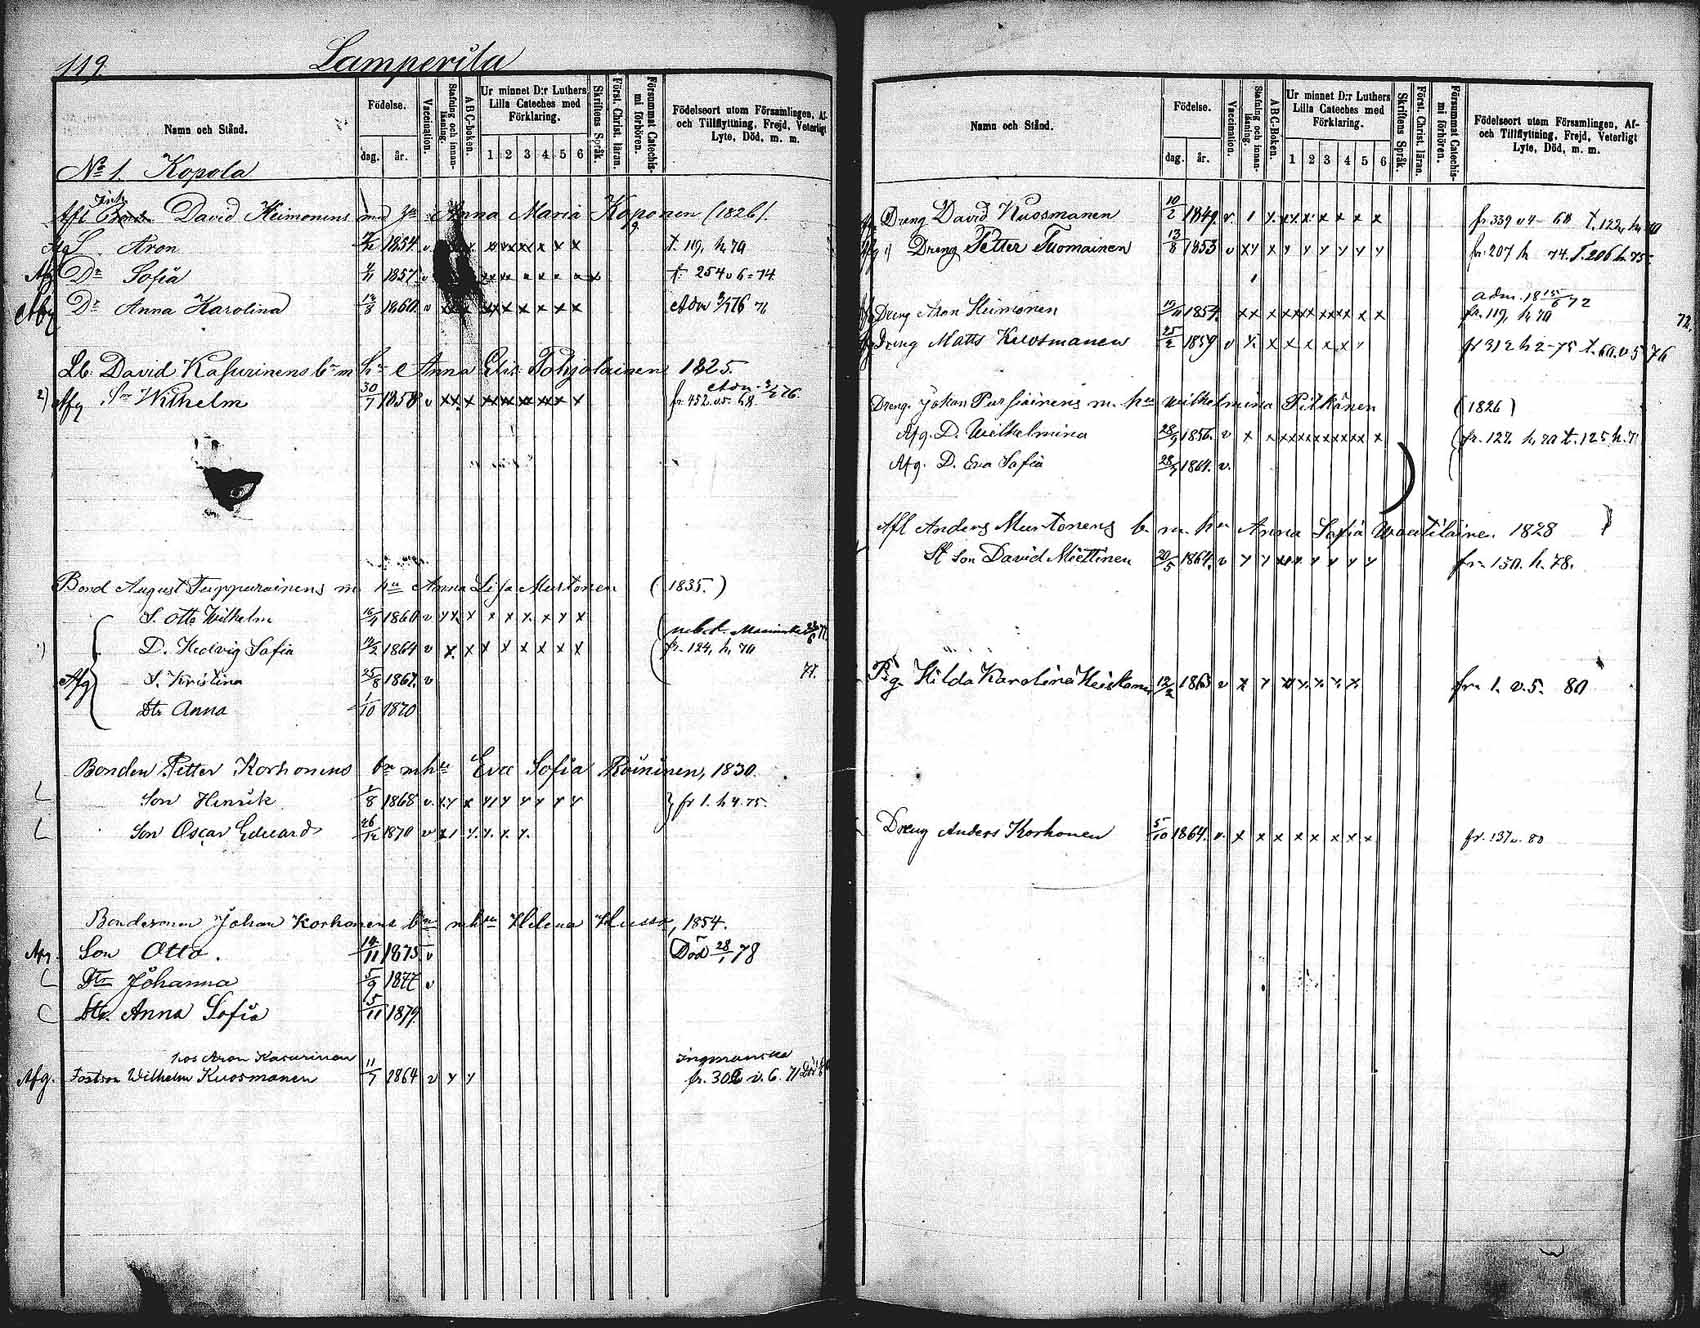 119.
Lamperila
Namn och Stånd.
Födelse.
dag.
år.
Vaccination.
Stafning och innan-läsning.
ABC-boken.
Ur minnet D:r Luthers
Lilla Cateches med
Förklaring.
1 2 3 4 5 6
Skriftens Språk.
Först. Christ. läran.
Försummat Catechis-
mi förhören.
Födelseort utom Församlingen, Af-
och Tillflyttning, Frejd, Veterligt
Lyte, Död, m. m.
No 1. Kopola
Afl. David Heimonens med Anna Maria Koponen (1826).
S. Aron 1854 v t. 119, h 70
Afg Dr Sofia 1857 v t. 254 v 6 - 74
Afg Dr Anna Karolina 1860 v
Lb. David Kasurinens br m hu Anna Elis. Pohjolainen 1825.
2) Afg Son Wilhelm 30/7 1858 v fr. 452 v. 5 - 68
Bond August Tuppurainens m hu Anna Lisa Mustonen (1835.)
S. Otto Wilhelm 1860 v
D. Hedvig Sofia 1864 v fr. 124, h, 70
Afg S. Kristina 25/8 1867. v
Dtr Anna 1/10 1870
Bonden Petter Korhonens br m hu Eva Sofia Roininen, 1830.
Son Henrik 1/8 1868 v. fr 1. h 4. 75.
Son Oscar Edvard 26/12 1870 v
Bondesonen Johan Korhonens br m hu Helena Husso, 1854.
Afg. Son Otto. 1875 v Död 28/1 78
Dtr Johanna 5/9 1877 v
Dtr. Anna Sofia 15/11 1879
hos Aron Kasurinen
Afg. Fostson Wilhelm Kuosmanen 11/7 1864 v fr. 302 v. 6. 71
Namn och Stånd.
Födelse.
dag.
år.
Vaccination.
Stafning och innan-läsning.
ABC-boken.
Ur minnet D:r Luthers
Lilla Cateches med
Förklaring.
1 2 3 4 5 6
Skriftens Språk.
Först. Christ. läran.
Försummat Catechis-
mi förhören.
Födelseort utom Församlingen, Af-
och Tillflyttning, Frejd, Veterligt
Lyte, Död, m. m.
Dreng David Kuosmanen 10/2 1849. v. fr. 339 v 4 - 68 t. 122, h, 70
Dreng Petter Tuomainen 13/8 1853 v fr. 207 h 74. t. 206 h. 75
Dreng Aron Heimonen 1854. fr. 119, h 70
72.
Dreng Matts Kuosmanen 25/2 1859 v fr 312 h 2 - 75 t. 60. v 5 76
Dreng. Johan Pursiainens m. hu Wilhelmina Pitkänen (1826)
Afg. D. Wilhelmina 28/9 1856. v fr. 127. h. 70 t. 125 h. 7
Afg. D. Eva Sofia 1864. v.
Afl Anders Mustonens b. m. hu Anna Sofia Waatilaine. 1828
St Son David Miettinen 20/5 1864. v fr. 150. h. 78.
Pig. Hilda Karolina Heiskanen 12/2 1863 v fr. 1. v. 5. 80
Dreng Anders Korhonen 5/10 1864. v. fr. 137 v. 80